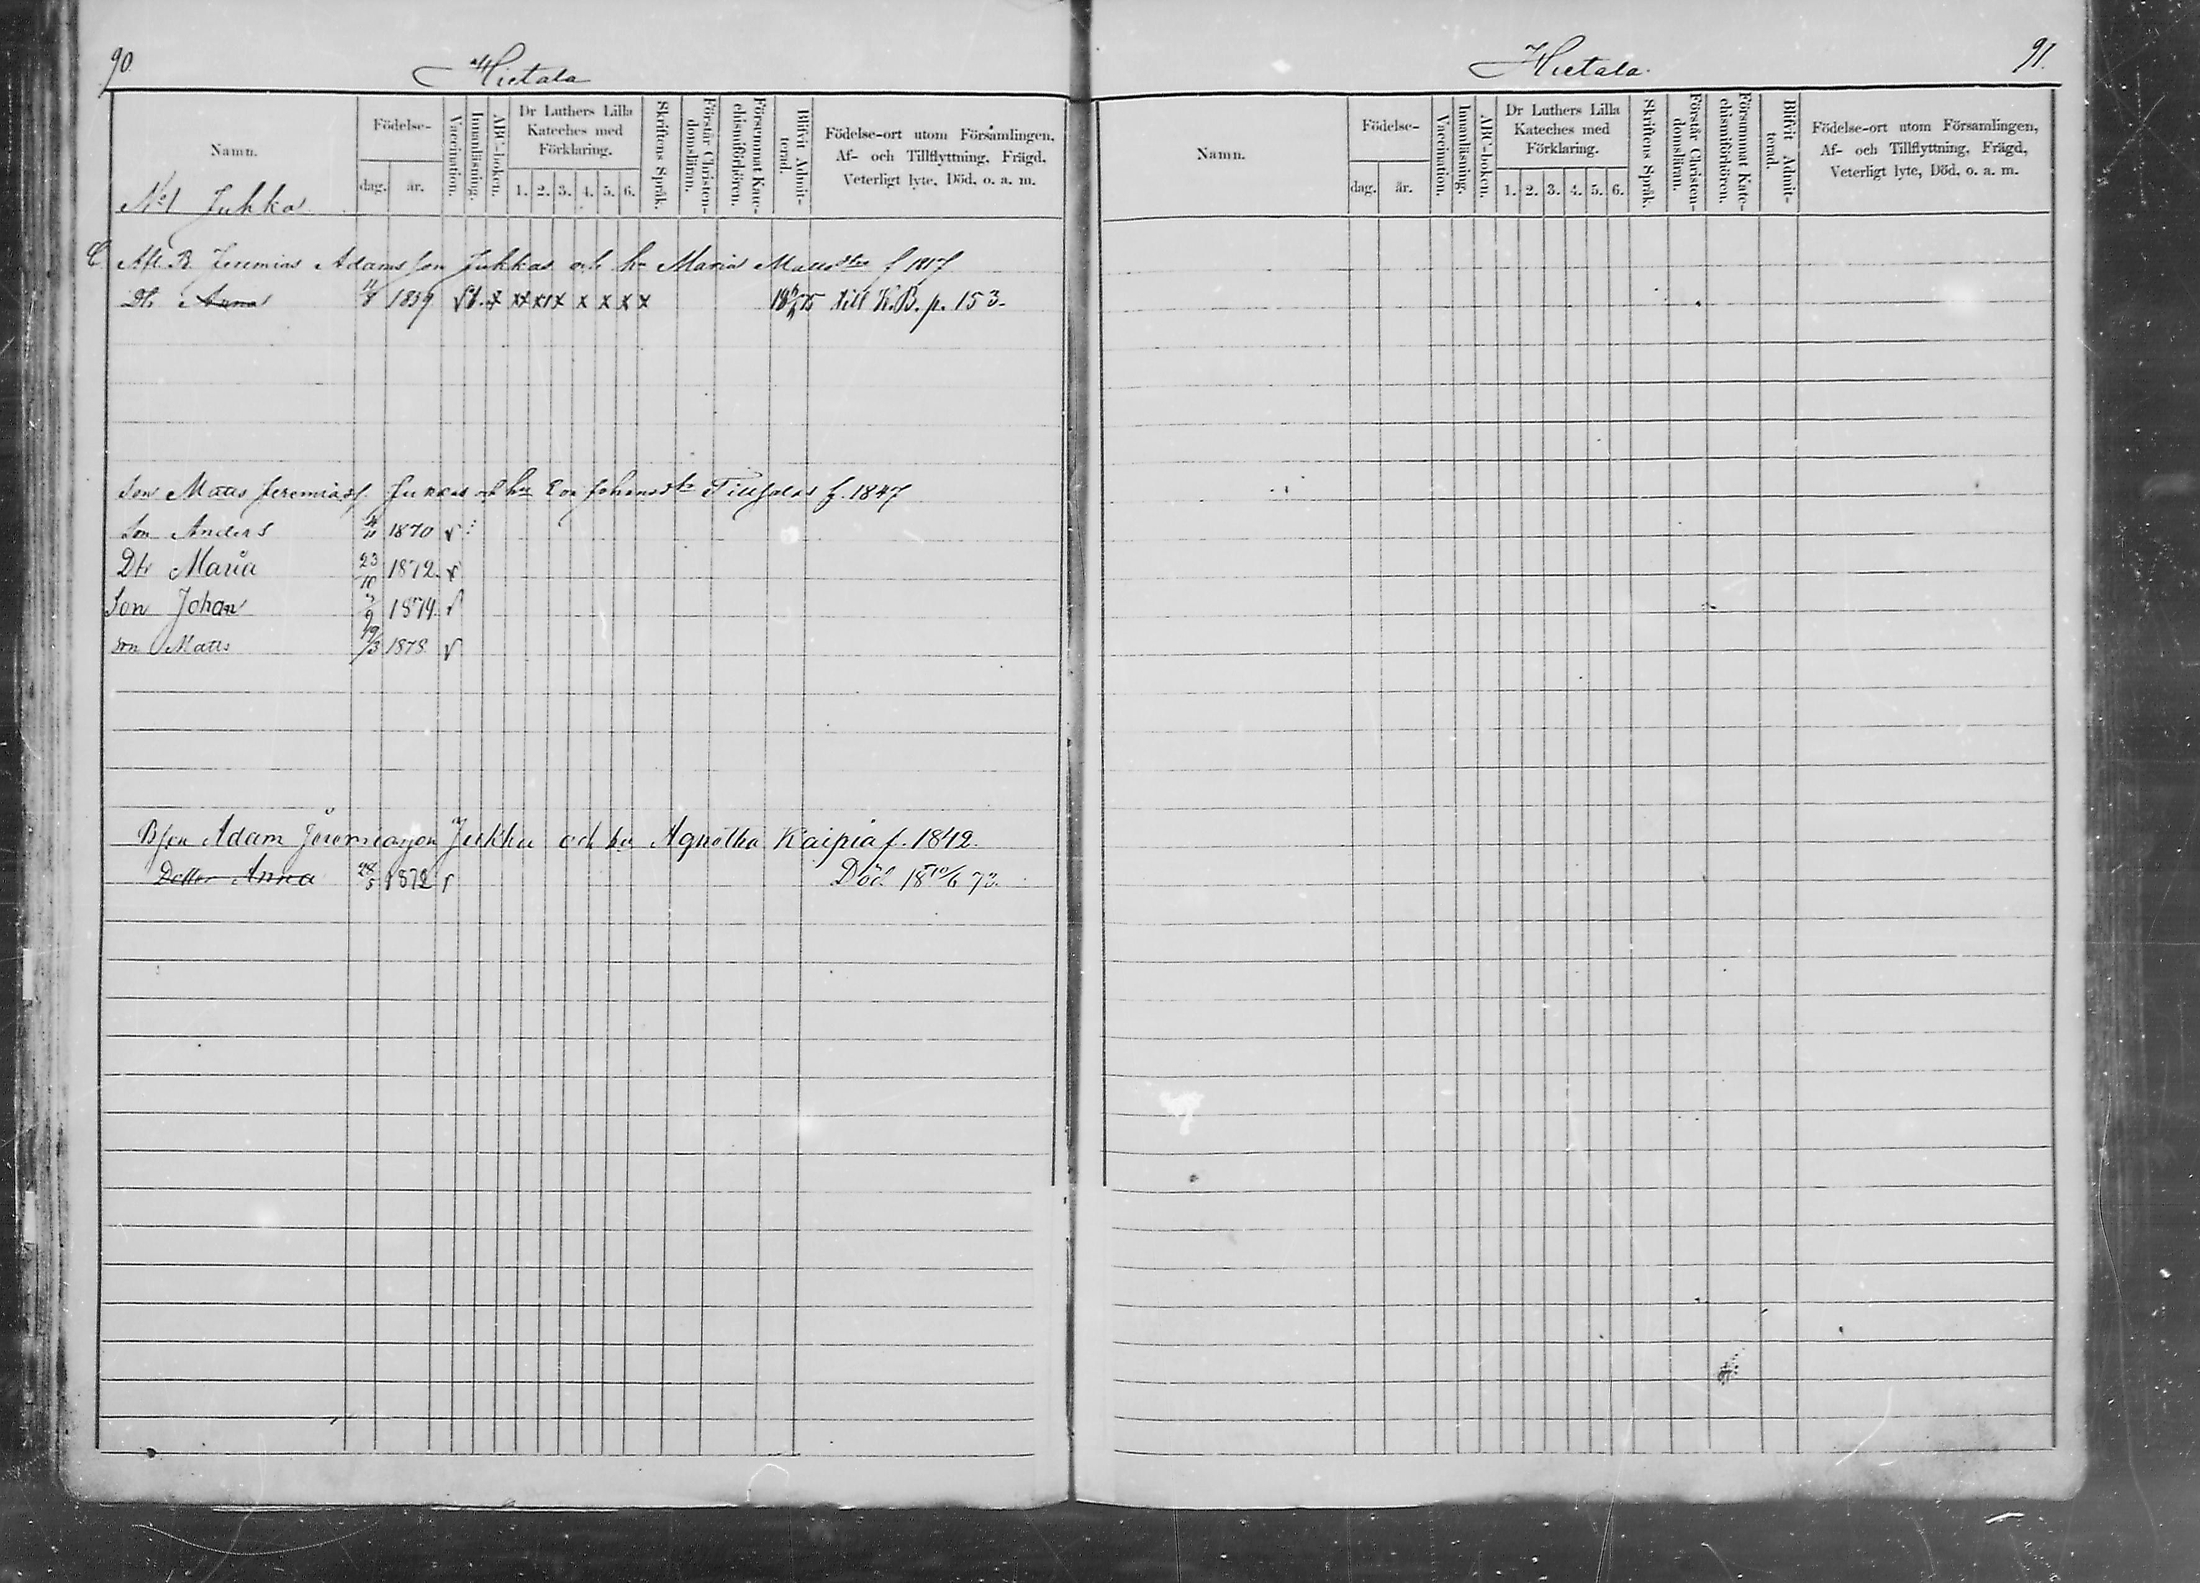 90.
Hietala
Namn.
Födelse-
dag.
år.
Vaccination.
Innanläsning.
ABC-boken.
Dr Luthers Lilla
Kateches med
Förklaring.
1. 2. 3. 4. 5. 6.
Skriftens Språk.
Förstår Christen-
domsläran.
Försummat Kate-
chismiförhören.
Blifvit Admit-
terad.
Födelse-ort utom Församlingen,
Af- och Tillflyttning, Frägd,
Veterligt lyte, Död, o. a. m.
No 1 Jukka
Jeremias Adamsson Jukkas och hu Maria Mattsdtr f 1817
Dtr Anna 1859 x xx x x x x x x till K.B. p. 153.
Son Matts Jeremiass. Jukkas och hu Johansdtr f. 1847
Son Anders 1870
Dtr Maria 23/10 1872
Son Johan 1874
son Matts 19/3 1878
Bson Adam Jeremiasson Jukka och hu Agnetha Kaipia f. 1842.
Dotter Anna 28/5 1872 Död 18 10/6 73.
91.
Hietala.
Namn.
Födelse-
dag.
år.
Vaccination.
Innanläsning.
ABC-boken.
Dr Luthers Lilla
Kateches med
Förklaring.
1. 2. 3. 4. 5. 6.
Skriftens Språk.
Förstår Christen-
domsläran.
Försummat Kate-
chismiförhören.
Blifvit Admit-
terad.
Födelse-ort utom Församlingen,
Af- och Tillflyttning, Frägd,
Veterligt lyte, Död, o. a. m.